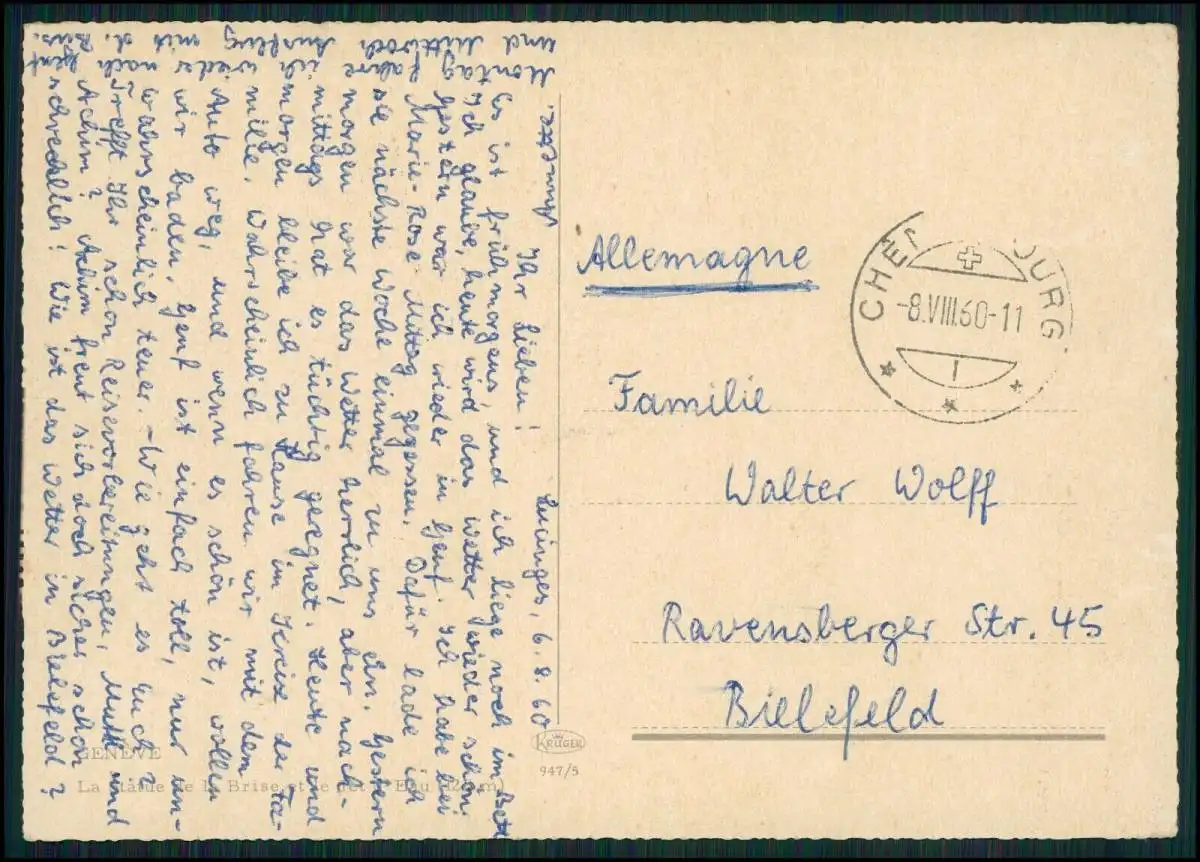 Ihr Lieben! Lucinges, 6.8.60
Es ist früh morgens, und ich liege noch im Bett
Ich glaube, heute wird das Wetter wieder schön.
Gestern war ich wieder in Genf. Ich habe bei
Marie-Rose Mittag gegessen. Dafür lade ich
sie nächste Woche einmal zu uns ein. Gestern
morgen war das Wetter herrlich, aber nach-
mittags hat es tüchtig geregnet. Heute und
morgen bleibe ich zu Hause im Kreise der Fa-
milie. Wahrscheinlich fahren wir mit dem
Auto weg, und wenn es schön ist, wollen
wir baden. Genf ist einfach toll, nur un-
wahrscheinlich teuer. - Wie geht es Euch?
Trefft Ihr schon Reisevorbereitungen, Mutti und
Achim? Achim freut sich doch sicher schon
schrecklich! Wie ist das Wetter in Bielefeld?
Montag fahre ich wieder nach Genf
und Mittwoch Ausflug mit d. Bus.
Annette.
GENÈVE
La Statue de la Brise et le Jet d'Eau (120 m)
KRÜGER
947/5
-8.VIII.60-11
1
Allemagne
Familie
Walter Wolff
Ravensberger Str. 45
Bielefeld